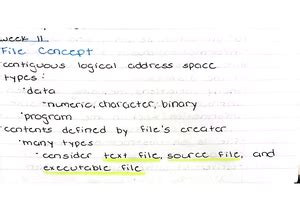 week 11
File Concept
contiguous logical address space
types:
•data
•numeric, character, binary
•program
contents defined by file's creator
•many types
•consider text file, source file, and
executable file